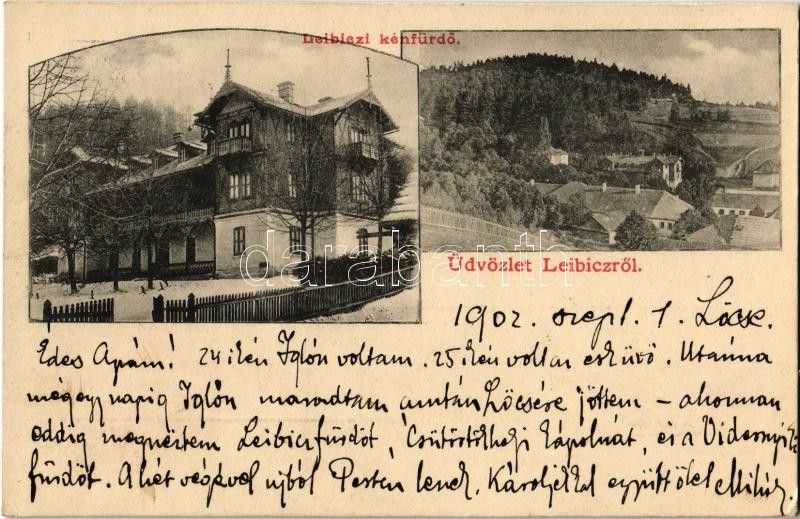 Leibiczi kénfürdő.
darabanth
Üdvözlet Leibiczről.
1902. szept. 1. Lőcse.
Édes Apám! 24 ikén Iglón voltam. 25 ikén volt az esküvő. Utánna
mégegy napig Iglón maradtam azután Lőcsére jöttem – ahonnan
eddig megnéztem Leibiczfürdőt, Csütörtökhelyi kápolnát, és a
fürdőt. A hét végével ujból Pesten leszek. Károlyékkal együtt ölel